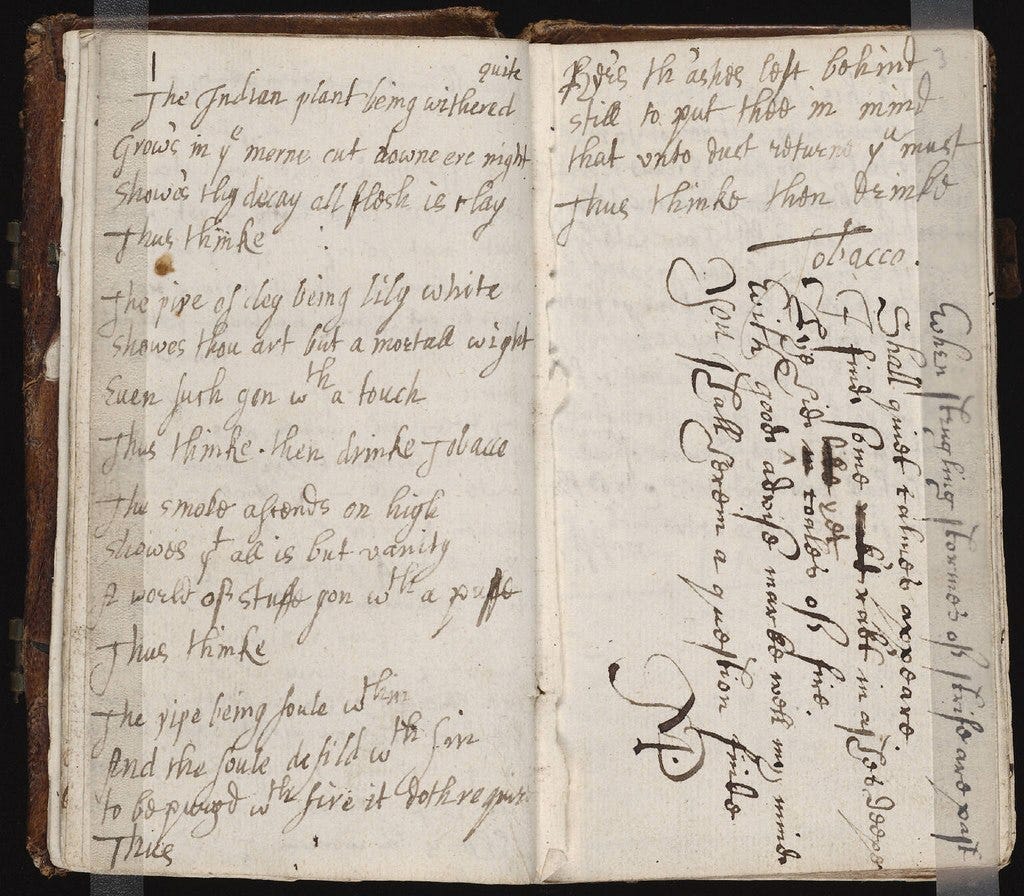 1
quite
The Indian plant being withered
Grow's in ye morne cut downe ere night
Show's thy decay all flesh is clay
Thus thinke
The pipe of cley being lily white
Showes thou art but a mortall wight
Even such gon wth a touch
Thus thinke. then drinke Tobacco
The smoke asends on high
Showes yt all is but vanity
A world of stuffe gon wth a puffe
Thus thinke
The pipe being foule wthin
And the soule defild wth sin
to be purged wth fire it doth require
Thus
Her's th'ashes left behind
still to put thee in mind
that vnto dust returne yu must
Thus thinke then drinke
Tobacco.
When strugling stormes of strife are past
Shall quiet calmes appeare.
I find some rakt in ashes deepe
Lye hid coales of fire.
With good advise marke well my minde
You shall herein a question finde